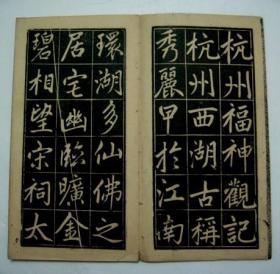 杭州福神觀記
杭州西湖古稱
秀麗甲於江南
環湖多仙佛之
居宅幽臨曠金
碧相望宋祠太